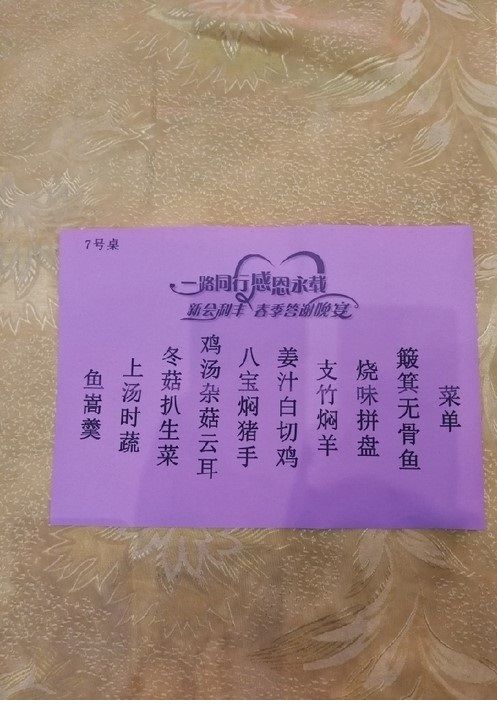 7号桌
一路同行感恩永载
新会利丰 春季答谢晚宴
菜单
簸箕无骨鱼
烧味拼盘
支竹焖羊
姜汁白切鸡
八宝焖猪手
鸡汤杂菇云耳
冬菇扒生菜
上汤时蔬
鱼嵩羹